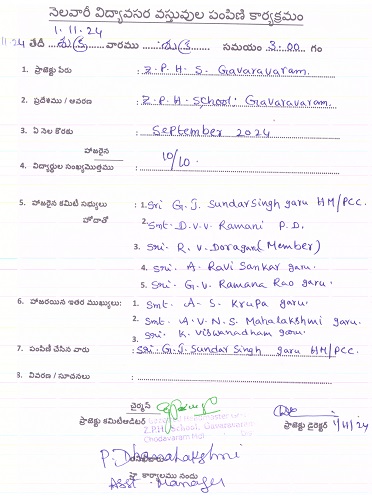 నెలవారీ విద్యావసర వస్తువుల పంపిణి కార్యక్రమం
1.11.24
11.24 తేదీ శుక్ర వారము శుక్ర సమయం 3.00 గం
1. ప్రాజెక్టు పేరు : Z.P.H.S. Gavaravaram.
2. ప్రదేశము / ఆవరణ : Z.P.H. School: Gavaravaram.
3. ఏ నెల కొరకు : September 2024
హాజరైన
4. విద్యార్థుల సంఖ్యమొత్తము : 10/10.
5. హాజరైన కమిటీ సభ్యులు : 1. Sri G.J. Sundar Singh garu HM/PCC.
హోదాతో 2. Smt. D.V.V. Ramani P.D.
3. Sri. R.V. Doragaru (Member)
4. Sri. A. Ravi Sankar garu.
5. Sri. G.V. Ramana Rao garu.
6. హాజరయిన ఇతర ముఖ్యులు: 1. Smt. A.S. Krupa garu.
2. Smt. A.V.N.S. Mahalakshmi garu.
3. Sri. K. Viswanadham garu.
7. పంపిణి చేసిన వారు : Sri. G.J. Sundar Singh garu HM/PCC.
8. వివరణ / సూచనలు :
చైర్మన్
ప్రాజెక్టు కమిటీ
Z.P.H. School, Gavaravaram
Chodavaram
ప్రాజెక్టు డైరెక్టర్ 1/11/24
P. Dhanalakshmi
హె. కార్యాలము నందు
Asst. Manager